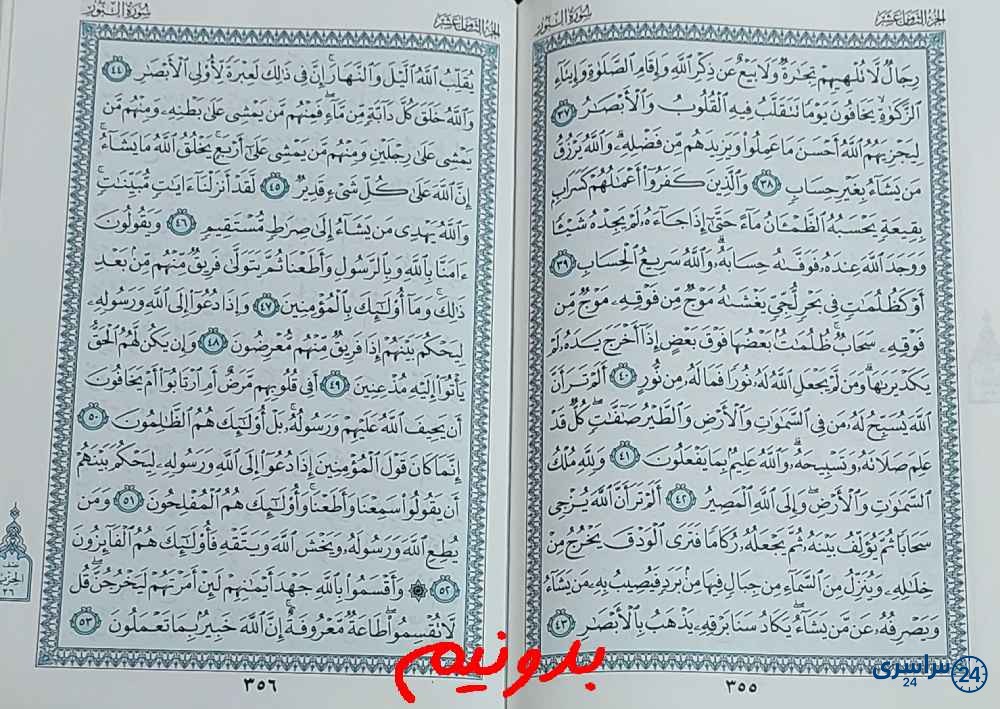 الجزء الثامن عشر
سورة النور
رِجَالٌ لَّا تُلْهِيهِمْ تِجَٰرَةٌ وَلَا بَيْعٌ عَن ذِكْرِ ٱللَّهِ وَإِقَامِ ٱلصَّلَوٰةِ وَإِيتَآءِ
ٱلزَّكَوٰةِ يَخَافُونَ يَوْمًا تَتَقَلَّبُ فِيهِ ٱلْقُلُوبُ وَٱلْأَبْصَٰرُ ٣٧
لِيَجْزِيَهُمُ ٱللَّهُ أَحْسَنَ مَا عَمِلُوا۟ وَيَزِيدَهُم مِّن فَضْلِهِۦ وَٱللَّهُ يَرْزُقُ
مَن يَشَآءُ بِغَيْرِ حِسَابٍ ٣٨ وَٱلَّذِينَ كَفَرُوٓا۟ أَعْمَٰلُهُمْ كَسَرَابٍۭ
بِقِيعَةٍ يَحْسَبُهُ ٱلظَّمْـَٔانُ مَآءً حَتَّىٰٓ إِذَا جَآءَهُۥ لَمْ يَجِدْهُ شَيْـًٔا
وَوَجَدَ ٱللَّهَ عِندَهُۥ فَوَفَّىٰهُ حِسَابَهُۥ وَٱللَّهُ سَرِيعُ ٱلْحِسَابِ ٣٩
أَوْ كَظُلُمَٰتٍ فِى بَحْرٍ لُّجِّىٍّ يَغْشَىٰهُ مَوْجٌ مِّن فَوْقِهِۦ مَوْجٌ مِّن
فَوْقِهِۦ سَحَابٌ ظُلُمَٰتٌۢ بَعْضُهَا فَوْقَ بَعْضٍ إِذَآ أَخْرَجَ يَدَهُۥ لَمْ
يَكَدْ يَرَىٰهَا وَمَن لَّمْ يَجْعَلِ ٱللَّهُ لَهُۥ نُورًا فَمَا لَهُۥ مِن نُّورٍ ٤٠ أَلَمْ تَرَ أَنَّ
ٱللَّهَ يُسَبِّحُ لَهُۥ مَن فِى ٱلسَّمَٰوَٰتِ وَٱلْأَرْضِ وَٱلطَّيْرُ صَٰٓفَّٰتٍ كُلٌّ قَدْ
عَلِمَ صَلَاتَهُۥ وَتَسْبِيحَهُۥ وَٱللَّهُ عَلِيمٌۢ بِمَا يَفْعَلُونَ ٤١ وَلِلَّهِ مُلْكُ
ٱلسَّمَٰوَٰتِ وَٱلْأَرْضِ وَإِلَى ٱللَّهِ ٱلْمَصِيرُ ٤٢ أَلَمْ تَرَ أَنَّ ٱللَّهَ يُزْجِى
سَحَابًا ثُمَّ يُؤَلِّفُ بَيْنَهُۥ ثُمَّ يَجْعَلُهُۥ رُكَامًا فَتَرَى ٱلْوَدْقَ يَخْرُجُ مِنْ
خِلَٰلِهِۦ وَيُنَزِّلُ مِنَ ٱلسَّمَآءِ مِن جِبَالٍ فِيهَا مِنۢ بَرَدٍ فَيُصِيبُ بِهِۦ مَن يَشَآءُ
وَيَصْرِفُهُۥ عَن مَّن يَشَآءُ يَكَادُ سَنَا بَرْقِهِۦ يَذْهَبُ بِٱلْأَبْصَٰرِ ٤٣
٣٥٥
الجزء الثامن عشر
سورة النور
يُقَلِّبُ ٱللَّهُ ٱلَّيْلَ وَٱلنَّهَارَ إِنَّ فِى ذَٰلِكَ لَعِبْرَةً لِّأُو۟لِى ٱلْأَبْصَٰرِ ٤٤
وَٱللَّهُ خَلَقَ كُلَّ دَآبَّةٍ مِّن مَّآءٍ فَمِنْهُم مَّن يَمْشِى عَلَىٰ بَطْنِهِۦ وَمِنْهُم مَّن
يَمْشِى عَلَىٰ رِجْلَيْنِ وَمِنْهُم مَّن يَمْشِى عَلَىٰٓ أَرْبَعٍ يَخْلُقُ ٱللَّهُ مَا يَشَآءُ
إِنَّ ٱللَّهَ عَلَىٰ كُلِّ شَىْءٍ قَدِيرٌ ٤٥ لَّقَدْ أَنزَلْنَآ ءَايَٰتٍ مُّبَيِّنَٰتٍ
وَٱللَّهُ يَهْدِى مَن يَشَآءُ إِلَىٰ صِرَٰطٍ مُّسْتَقِيمٍ ٤٦ وَيَقُولُونَ
ءَامَنَّا بِٱللَّهِ وَبِٱلرَّسُولِ وَأَطَعْنَا ثُمَّ يَتَوَلَّىٰ فَرِيقٌ مِّنْهُم مِّنۢ بَعْدِ
ذَٰلِكَ وَمَآ أُو۟لَٰٓئِكَ بِٱلْمُؤْمِنِينَ ٤٧ وَإِذَا دُعُوٓا۟ إِلَى ٱللَّهِ وَرَسُولِهِۦ
لِيَحْكُمَ بَيْنَهُمْ إِذَا فَرِيقٌ مِّنْهُم مُّعْرِضُونَ ٤٨ وَإِن يَكُن لَّهُمُ ٱلْحَقُّ
يَأْتُوٓا۟ إِلَيْهِ مُذْعِنِينَ ٤٩ أَفِى قُلُوبِهِم مَّرَضٌ أَمِ ٱرْتَابُوٓا۟ أَمْ يَخَافُونَ
أَن يَحِيفَ ٱللَّهُ عَلَيْهِمْ وَرَسُولُهُۥ بَلْ أُو۟لَٰٓئِكَ هُمُ ٱلظَّٰلِمُونَ ٥٠
إِنَّمَا كَانَ قَوْلَ ٱلْمُؤْمِنِينَ إِذَا دُعُوٓا۟ إِلَى ٱللَّهِ وَرَسُولِهِۦ لِيَحْكُمَ بَيْنَهُمْ
أَن يَقُولُوا۟ سَمِعْنَا وَأَطَعْنَا وَأُو۟لَٰٓئِكَ هُمُ ٱلْمُفْلِحُونَ ٥١ وَمَن
يُطِعِ ٱللَّهَ وَرَسُولَهُۥ وَيَخْشَ ٱللَّهَ وَيَتَّقْهِ فَأُو۟لَٰٓئِكَ هُمُ ٱلْفَآئِزُونَ
٥٢ ۞ وَأَقْسَمُوا۟ بِٱللَّهِ جَهْدَ أَيْمَٰنِهِمْ لَئِنْ أَمَرْتَهُمْ لَيَخْرُجُنَّ قُل
لَّا تُقْسِمُوا۟ طَاعَةٌ مَّعْرُوفَةٌ إِنَّ ٱللَّهَ خَبِيرٌۢ بِمَا تَعْمَلُونَ ٥٣
٣٥٦
نصف
الحزب
٣٦
بدونیم
سراسری 24
24